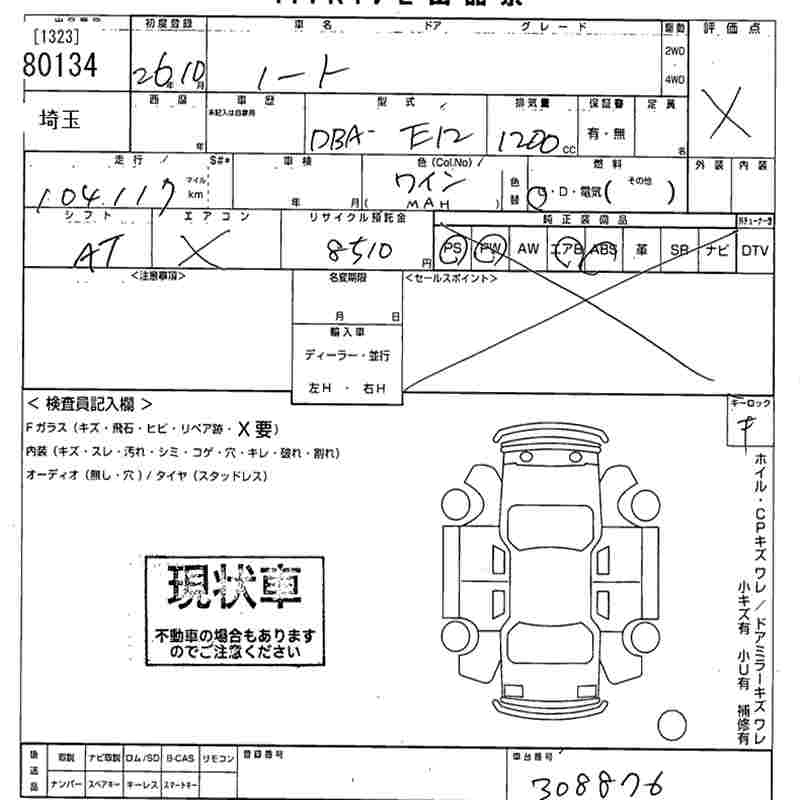 [1323]
80134
初度登録
26年10月
車名
ノート
ドア
グレード
駆動
2WD
4WD
評価点
X
埼玉
西暦
年
車歴
未記入は自家用
型式
DBA- E12
排気量
1200cc
保証書
有・無
定員
名
走行
S#*
104,117
マイル
km
車検
年 月
色(Col.No)
ワイン
(MAH)
色替
燃料
G・D・電気(その他)
外装
内装
シフト
AT
エアコン
X
リサイクル預託金
8510円
純正装備品
PS PW AW エアB ABS 革 SR ナビ DTV
<注意事項>
名変期限
月 日
輸入車
ディーラー・並行
左H・右H
<セールスポイント>
<検査員記入欄>
Fガラス(キズ・飛石・ヒビ・リペア跡・X要)
内装(キズ・スレ・汚れ・シミ・コゲ・穴・キレ・破れ・割れ)
オーディオ(無し・穴)/タイヤ(スタッドレス)
キーロック
現状車
不動車の場合もあります
のでご注意ください
ホイル・CPキズワレ/ドアミラーキズワレ
小キズ有 小U有 補修有
後送品
取説 ナビ取説 ロム/SD B-CAS リモコン
ナンバー スペアキー キーレス スマートキー
登録番号
車台番号
308876